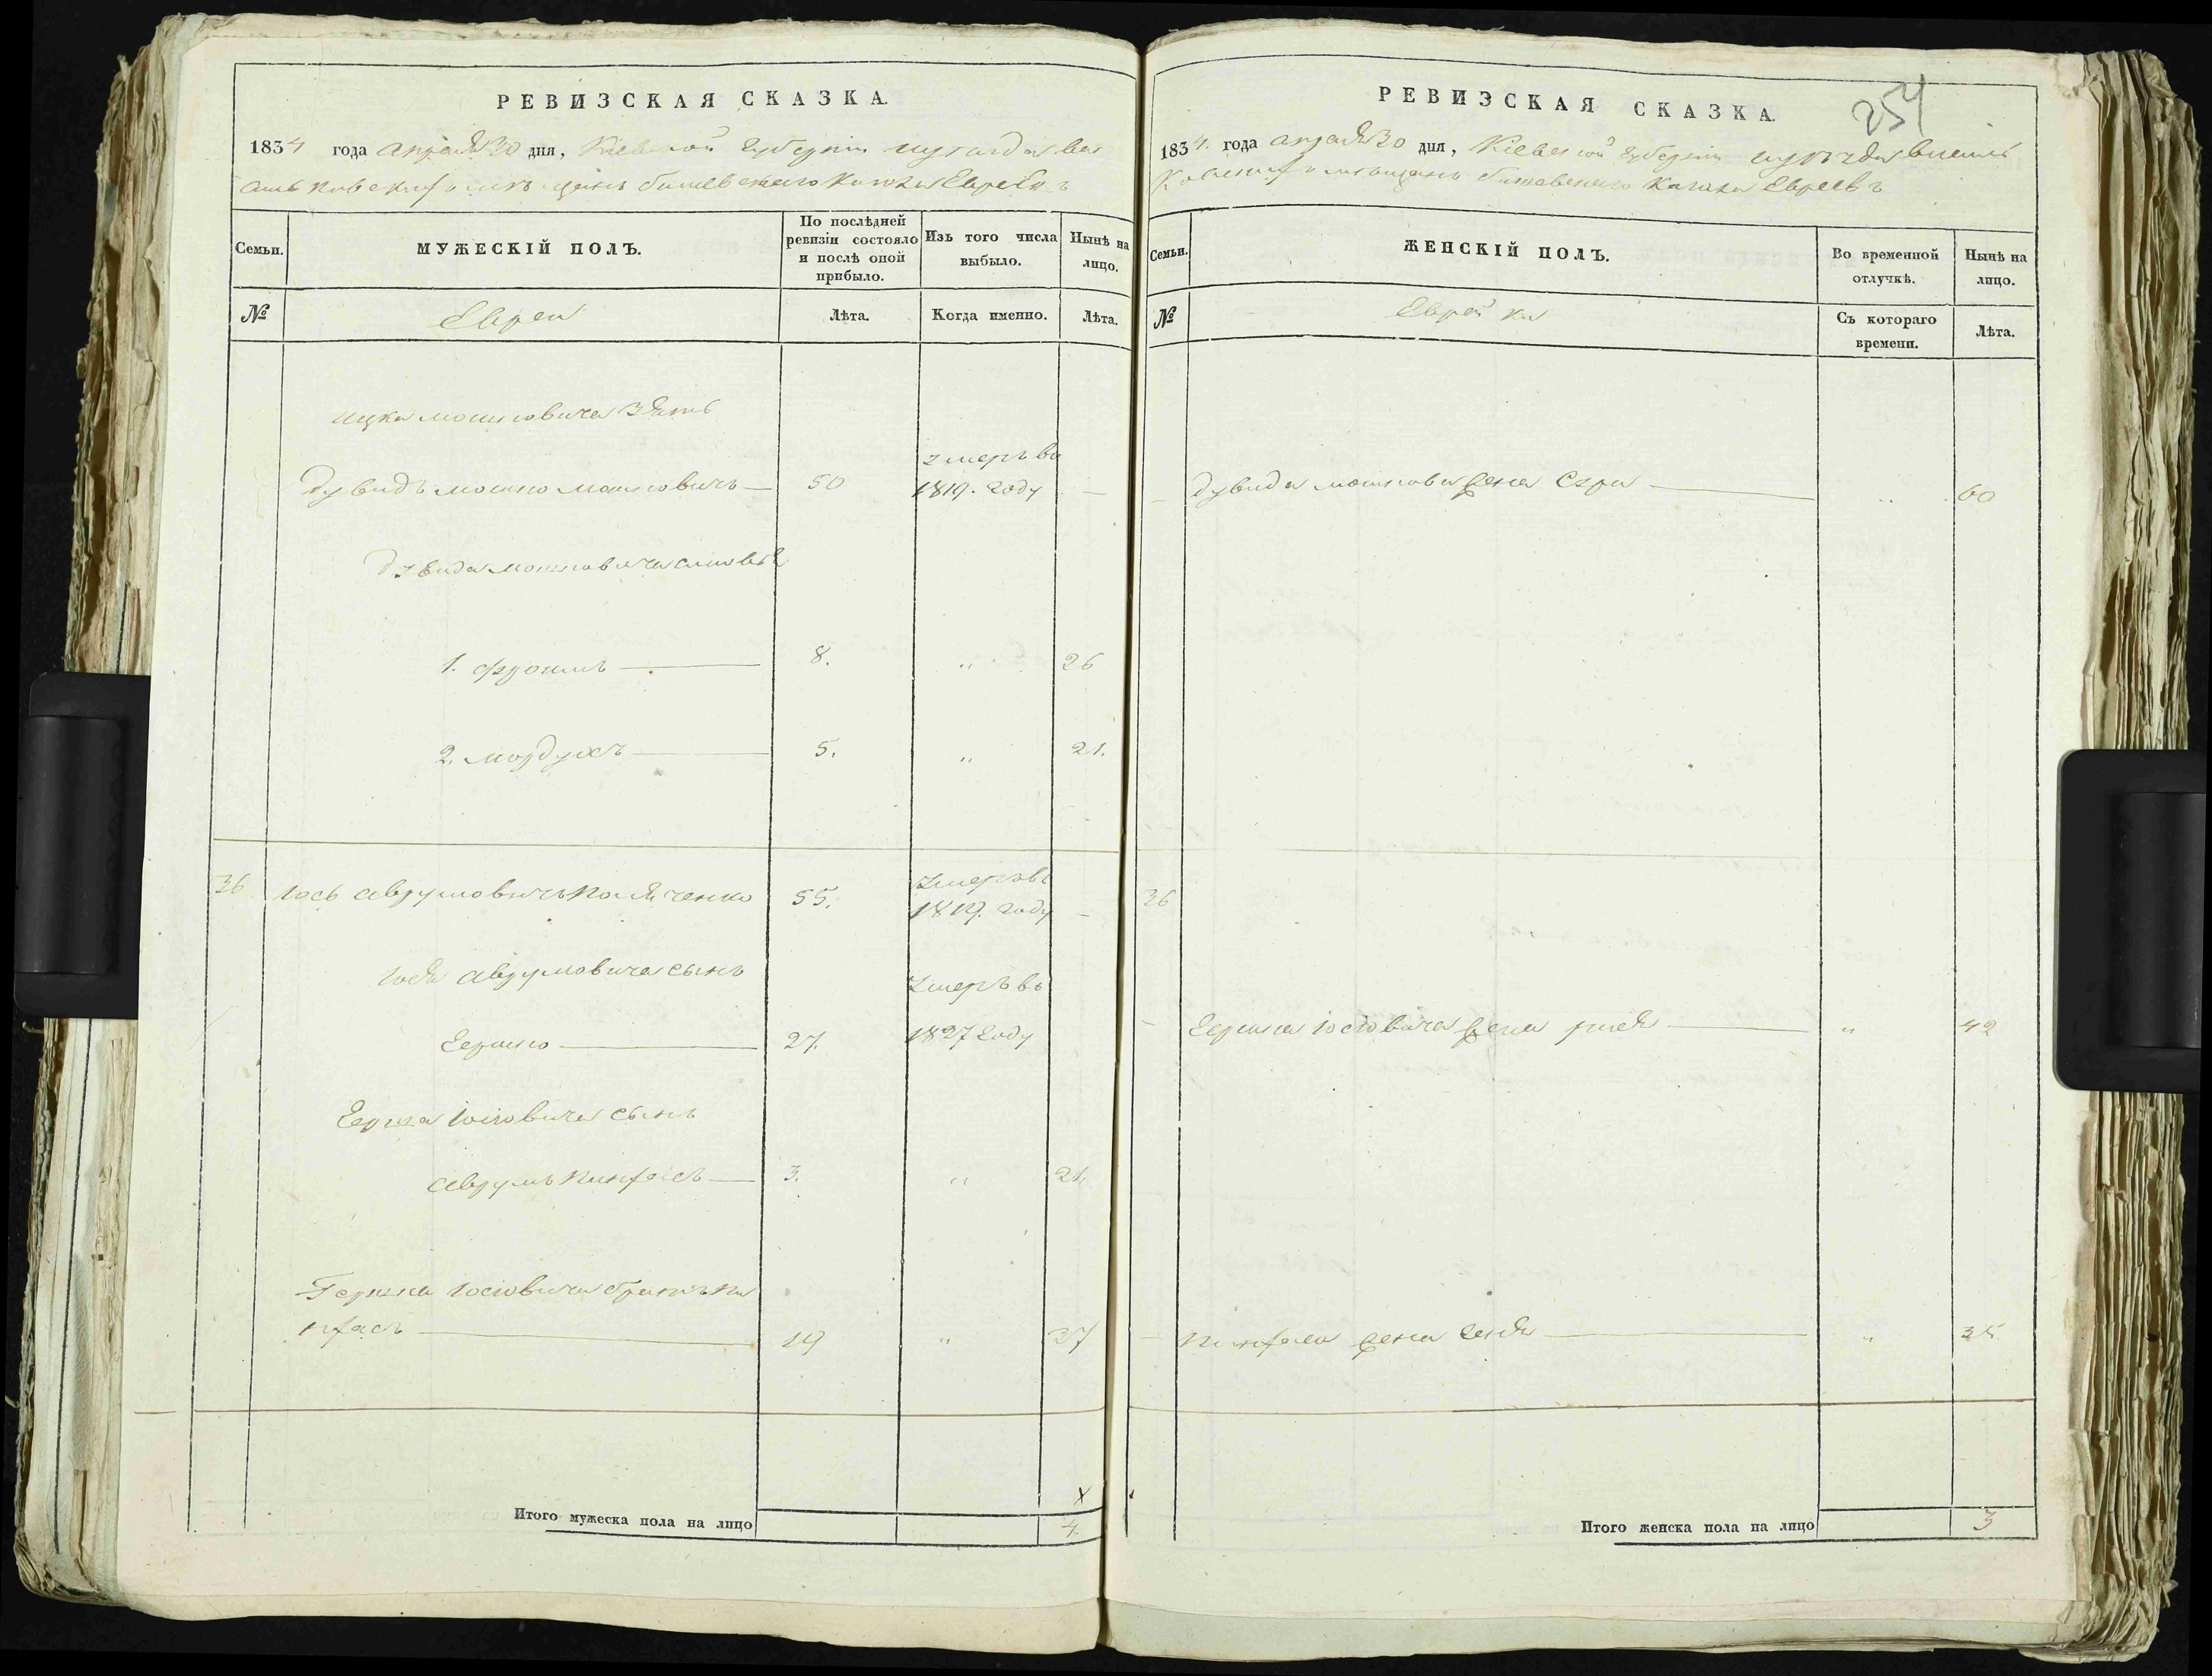 РЕВИЗСКАЯ СКАЗКА.
1834 года апреля 30 дня, Киевской губернии уезда Ва
сильковского мещан бышевского Кагала Евреев
Семьи.
МУЖЕСКІЙ ПОЛЪ.
По послѣдней
ревизіи состояло
и послѣ оной
прибыло.
Изъ того числа
выбыло.
Нынѣ на
лицо.
№
Евреи
Лѣта.
Когда именно.
Лѣта.
Ицка мошковича зять
Дувидъ мошко мошковичъ — 50
умеръ въ
1819. году —
Дувида мошковича сыновья
1. фроимъ — 8. „ 26
2. мордухъ — 5. „ 21.
36 Іось Аврумовичъ 55.
умеръ въ
1819. году —
Іося Аврумовича сынъ
Гершко — 27.
умеръ въ
1827 году
Герша Іосіовича сынъ
Аврумъ Пинхасъ — 3. „ 21.
Гершка Іосіовича братъ Пи
нхасъ — 19 „ 37
Итого мужеска пола на лицо
х
4.
РЕВИЗСКАЯ СКАЗКА.
254
1834. года апреля 30 дня, Киевской губернии уезда Василь
Ковского мещан бышевского Кагала Евреевъ
Семьи.
ЖЕНСКІЙ ПОЛЪ.
Во временной
отлучкѣ.
Нынѣ на
лицо.
№
Еврейки
Съ котораго
времени.
Лѣта.
— Дувида мошкова жена Сура — „ 60
36
— Гершка Іосіовича жена — „ 42
— Пинхаса жена — „ 35
Итого женска пола на лицо 3